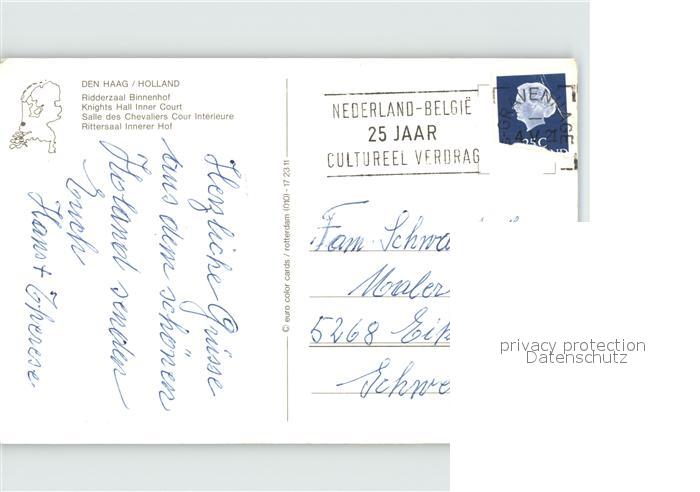 DEN HAAG / HOLLAND
Ridderzaal Binnenhof
Knights Hall Inner Court
Salle des Chevaliers Cour Intérieure
Rittersaal Innerer Hof
Herzliche Grüsse
aus dem schönen
Holland senden
Euch
Hans + Therese
© euro color cards / rotterdam (010) - 17 23 11
NEDERLAND-BELGIË
25 JAAR
CULTUREEL VERDRAG
25C
Fam. Schwa
Maler
5268 Eik
Schwe
privacy protection
Datenschutz